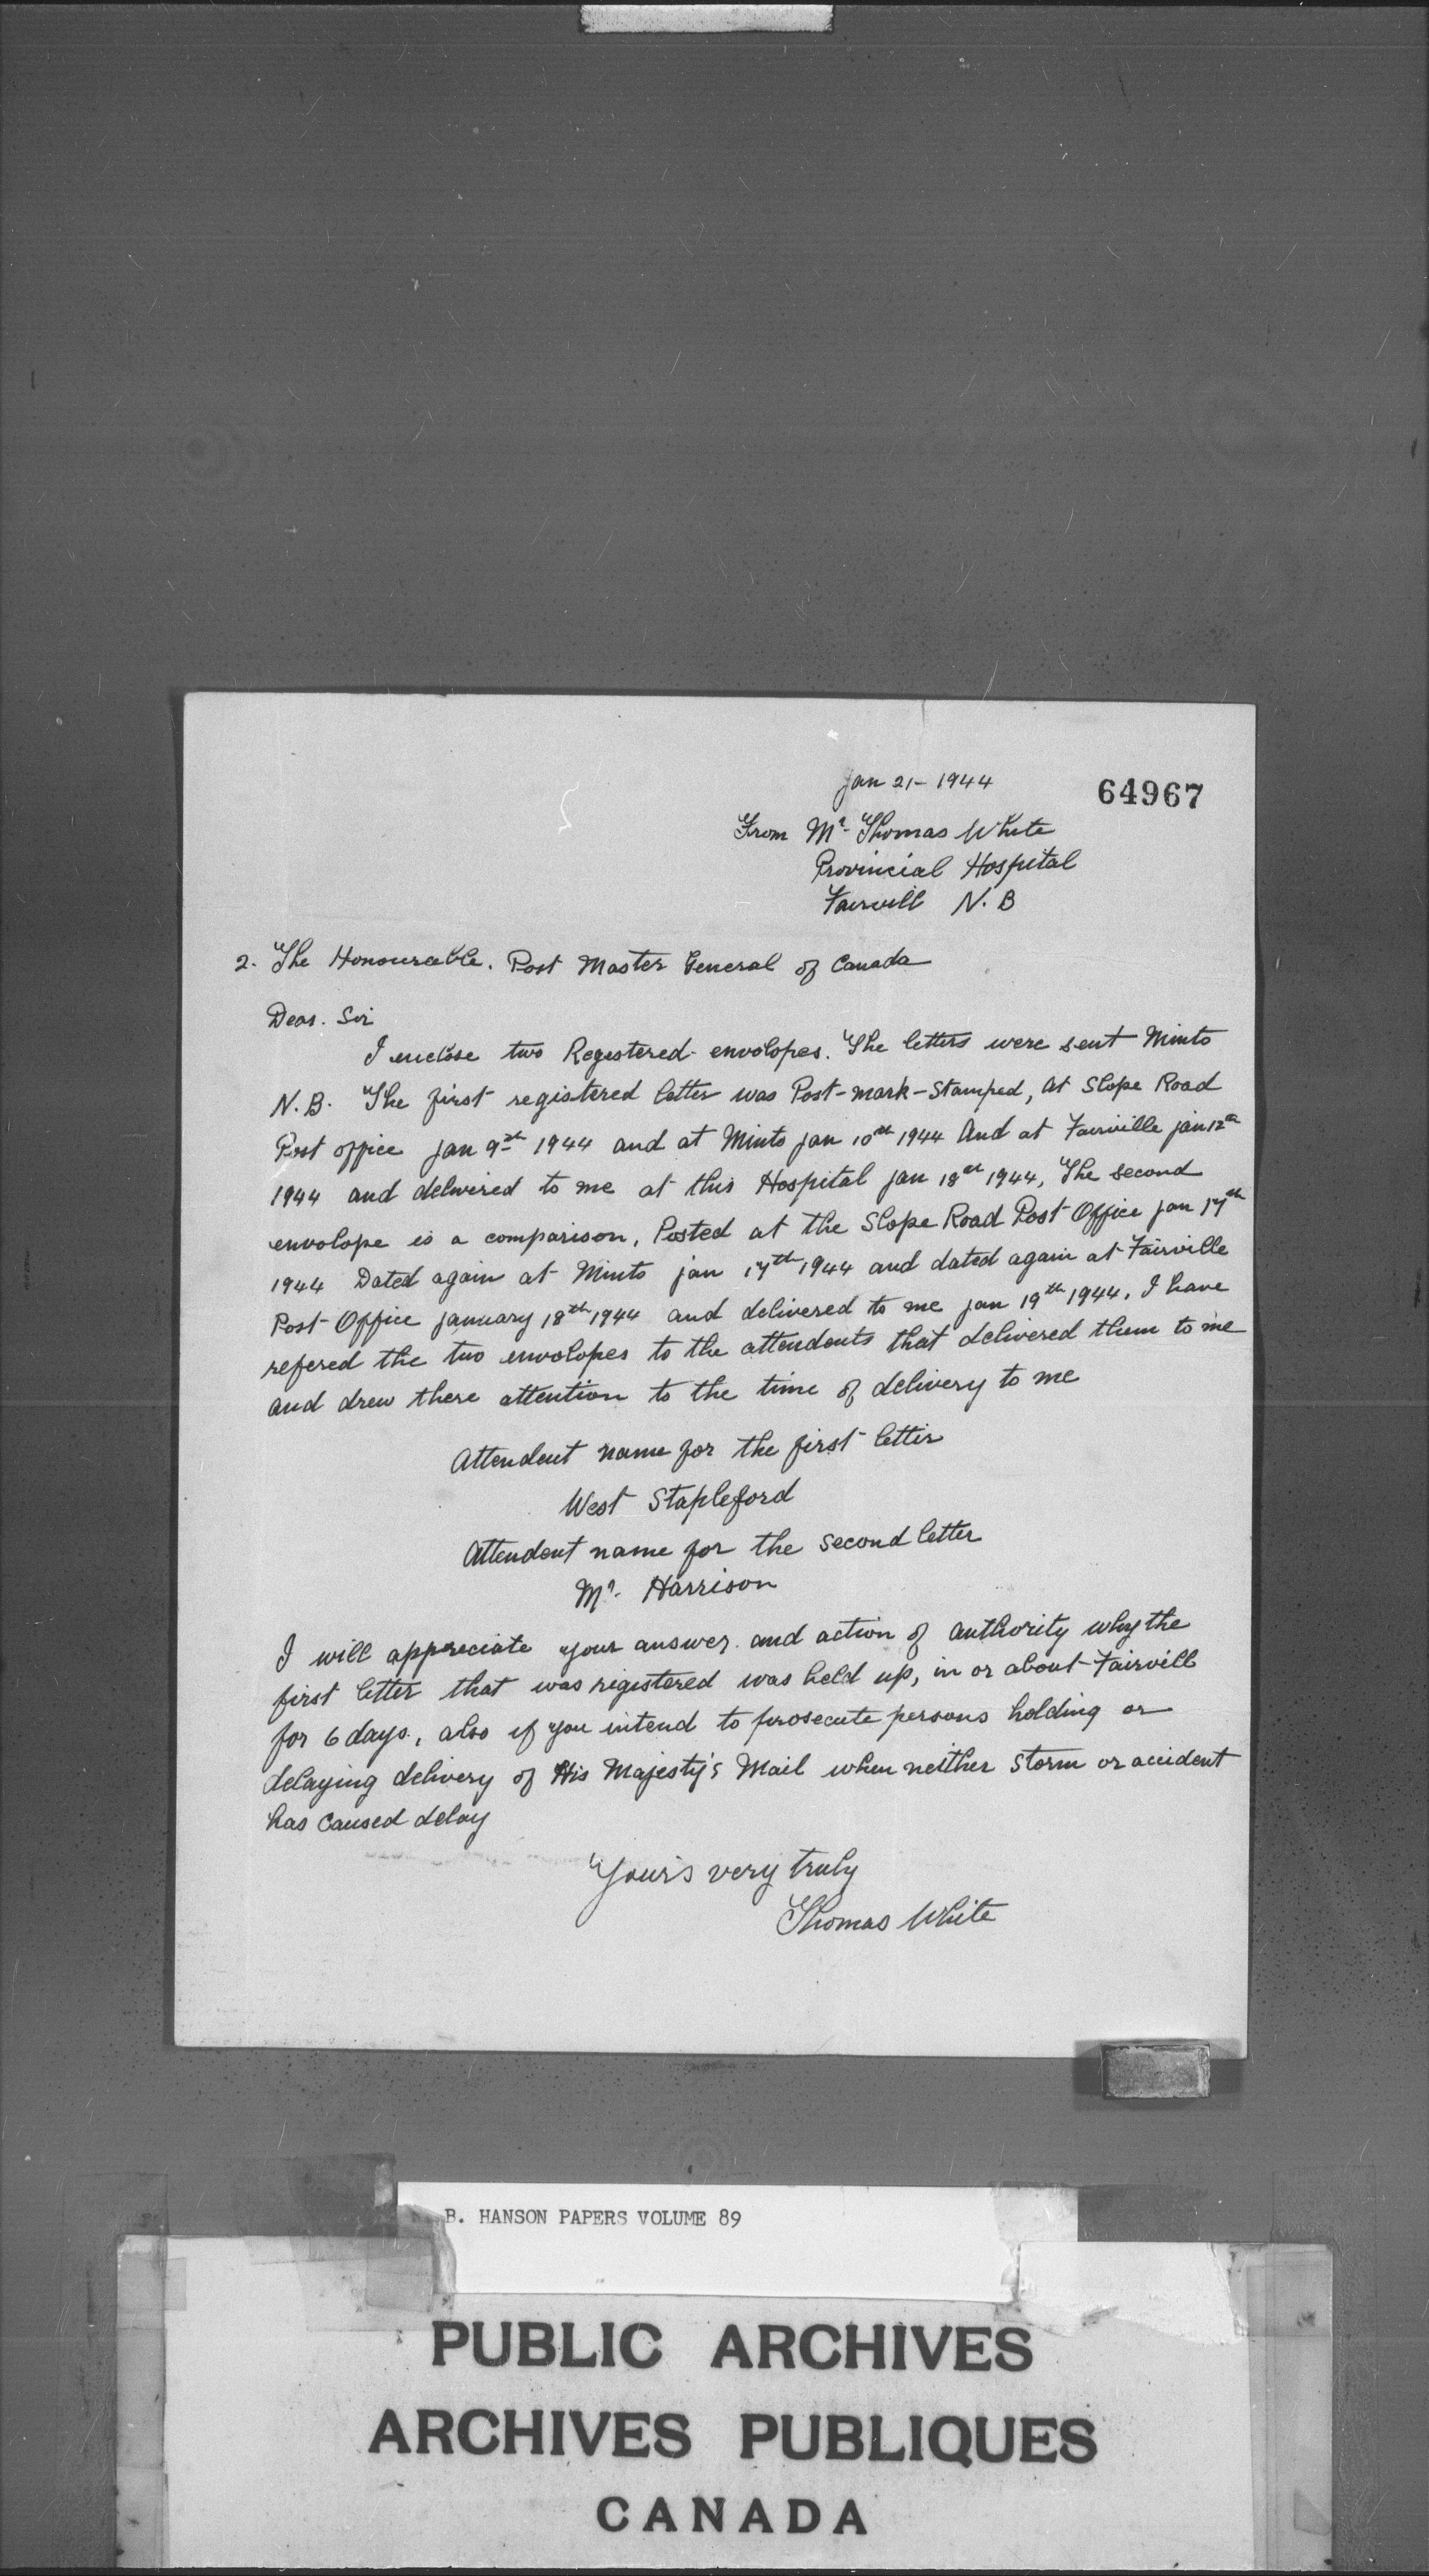 Jan 21 - 1944
64967
From Mr. Thomas White
Provincial Hospital
Fairvill N.B
2. The Honourable. Post Master General of Canada
Dear. Sir
I enclose two Registered envolopes. The letters were sent Minto
N.B. The first registered letter was Post-mark-Stamped, at Slope Road
Post office Jan 9th 1944 and at Minto Jan 10th 1944 And at Fairville jan 12th
1944 and delivered to me at this Hospital jan 18th 1944, The second
envolope is a comparison. Posted at the Slope Road Post Office jan 17th
1944 Dated again at Minto jan 17th 1944 and dated again at Fairville
Post Office january 18th 1944 and delivered to me jan 19th 1944. I have
refered the two envolopes to the attendents that delivered them to me
and drew there attention to the time of delivery to me
Attendent name for the first letter
West Stapleford
Attendent name for the second letter
Mr. Harrison
I will appreciate your answer. and action of authority why the
first letter that was registered was held up, in or about Fairvill
for 6 days., also if you intend to prosecute persons holding or
delaying delivery of His Majesty's Mail when neither storm or accident
has caused delay
Your's very truly
Thomas White
B. HANSON PAPERS VOLUME 89
PUBLIC ARCHIVES
ARCHIVES PUBLIQUES
CANADA